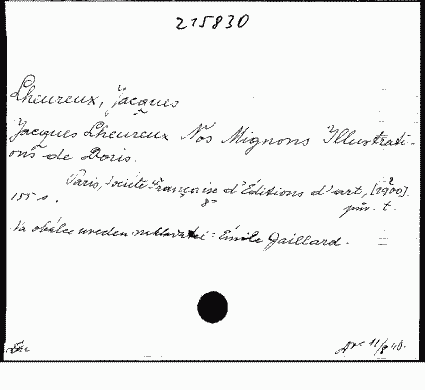 215830
Lheureux, Jacques
Jacques Lheureux Nos Mignons Illustrati-
ons de Doris.
Paris, Société Française d'Éditions d'art, [1900].
155 s. 8° pův. t.
Na obálce uveden nakladatel: Emile Gaillard.